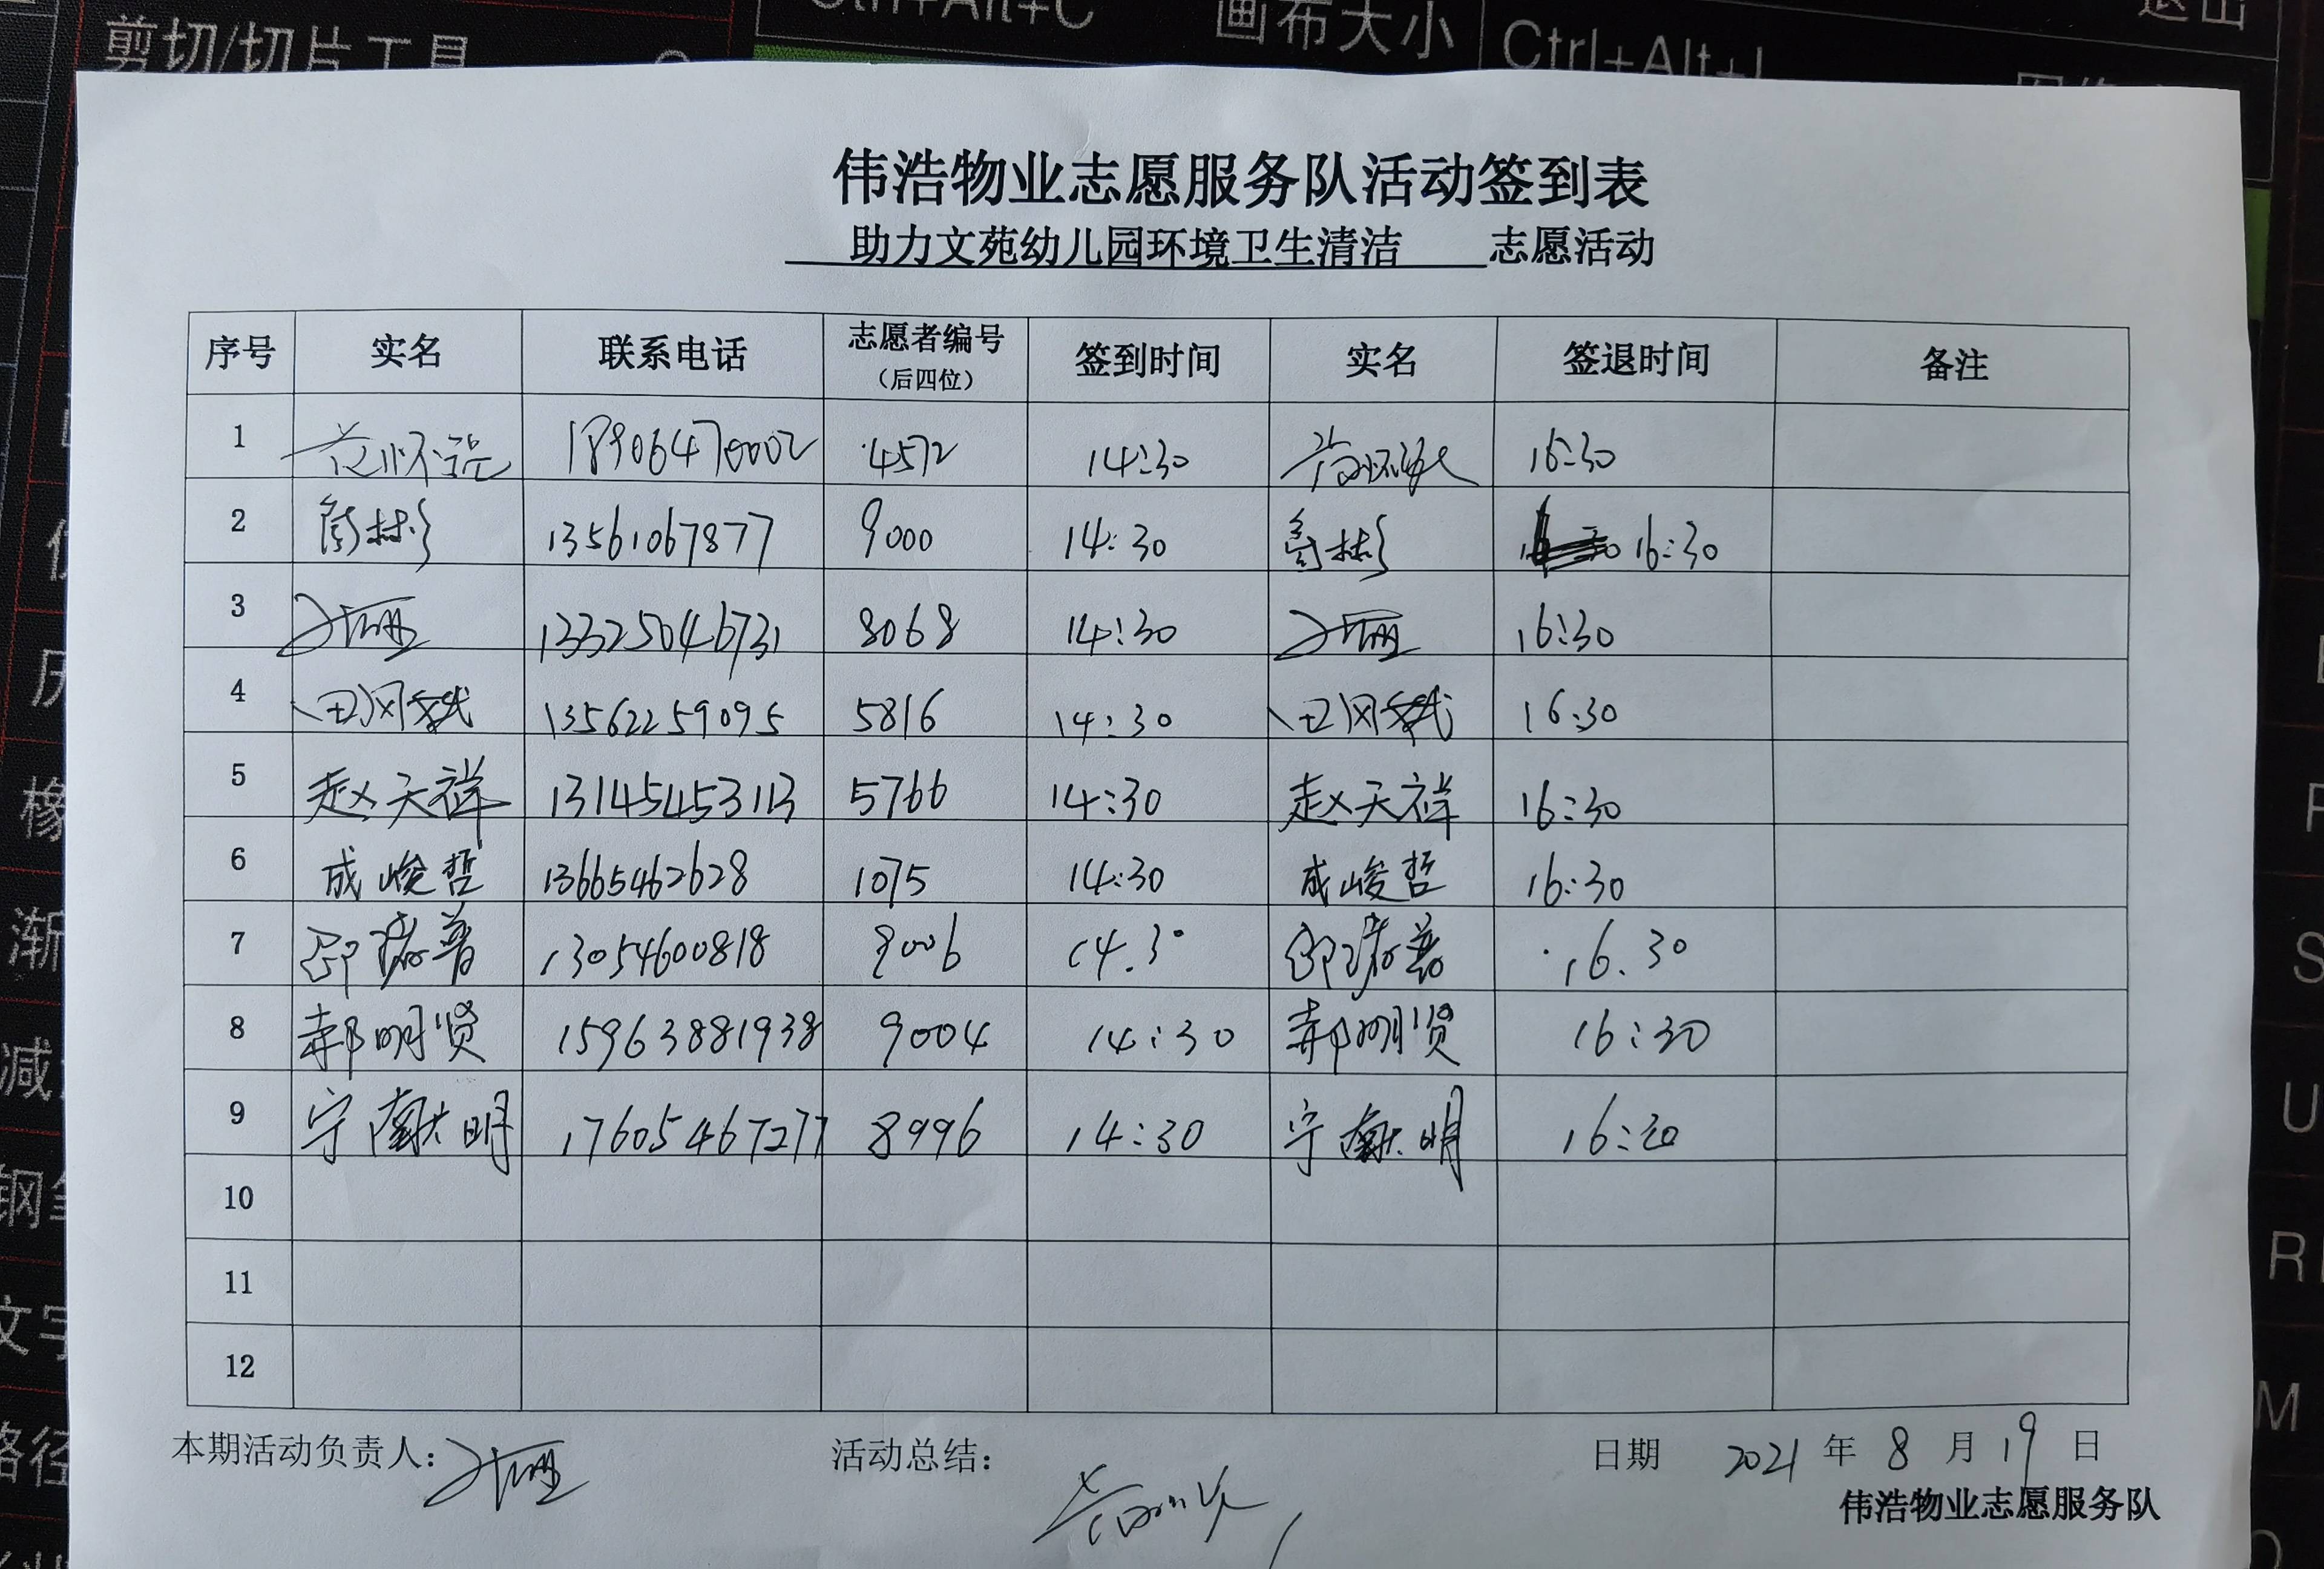 剪切/切片工具
Ctrl+Alt+C
画布大小
Ctrl+Alt+I
退出
伟浩物业志愿服务队活动签到表
助力文苑幼儿园环境卫生清洁 志愿活动
序号 实名 联系电话 志愿者编号（后四位） 签到时间 实名 签退时间 备注
1 18906470002 4572 14:30 16:30
2 13561067877 9000 14:30 16:30
3 13325046731 8068 14:30 16:30
4 13562259095 5816 14:30 16:30
5 赵天祥 13145453113 5766 14:30 赵天祥 16:30
6 成峻哲 13665462628 1075 14:30 成峻哲 16:30
7 13054600818 9006 14.30 16.30
8 郝明贤 15963881938 9004 14:30 郝明贤 16:30
9 宁献明 17605467277 8996 14:30 宁献明 16:30
10
11
12
本期活动负责人： 活动总结： 日期 2021 年 8 月 19 日
伟浩物业志愿服务队